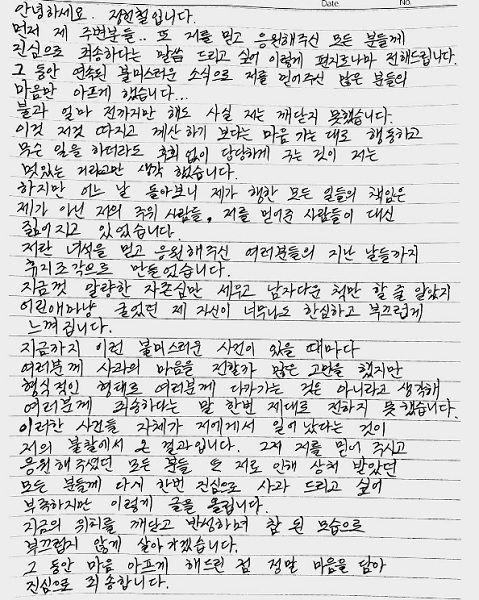 Date No.
안녕하세요. 장현철입니다.
먼저 제 주변분들.. 또 저를 믿고 응원해주신 모든 분들께
진심으로 죄송하다는 말씀 드리고 싶어 이렇게 편지로나마 전해드립니다.
그 동안 연속된 불미스러운 소식으로 저를 믿어주신 많은 분들의
마음만 아프게 했습니다...
불과 얼마 전까지만 해도 사실 저는 깨닫지 못했습니다.
이것 저것 따지고 계산 하기 보다는 마음 가는 대로 행동하고
무슨 일을 하더라도 후회 없이 당당하게 구는 것이 저는
멋있는 거라고만 생각 했습니다.
하지만 어느 날 돌아보니 제가 행한 모든 일들의 책임은
제가 아닌 저의 주위 사람들, 저를 믿어준 사람들이 대신
짊어지고 있었습니다.
저란 녀석을 믿고 응원해주신 여러분들의 지난 날들까지
휴지조각으로 만들었습니다.
지금껏 알량한 자존심만 세우고 남자다운 척만 할 줄 알았지
어린애마냥 굴었던 제 자신이 너무나도 한심하고 부끄럽게
느껴집니다.
지금까지 이런 불미스러운 사건이 있을 때마다
여러분께 사과의 마음을 전할까 많은 고민을 했지만
형식적인 형태로 여러분께 다가가는 것은 아니라고 생각해
여러분께 죄송하다는 말 한번 제대로 전하지 못했습니다.
이러한 사건들 자체가 저에게서 일어났다는 것이
저의 불찰에서 온 결과입니다. 그저 저를 믿어 주시고
응원해주셨던 모든 분들 또 저로 인해 상처 받았던
모든 분들께 다시 한번 진심으로 사과 드리고 싶어
부족하지만 이렇게 글을 올립니다.
지금의 위치를 깨닫고 반성하며 참 된 모습으로
부끄럽지 않게 살아가겠습니다.
그 동안 마음 아프게 해드린 점 정말 마음을 담아
진심으로 죄송합니다.